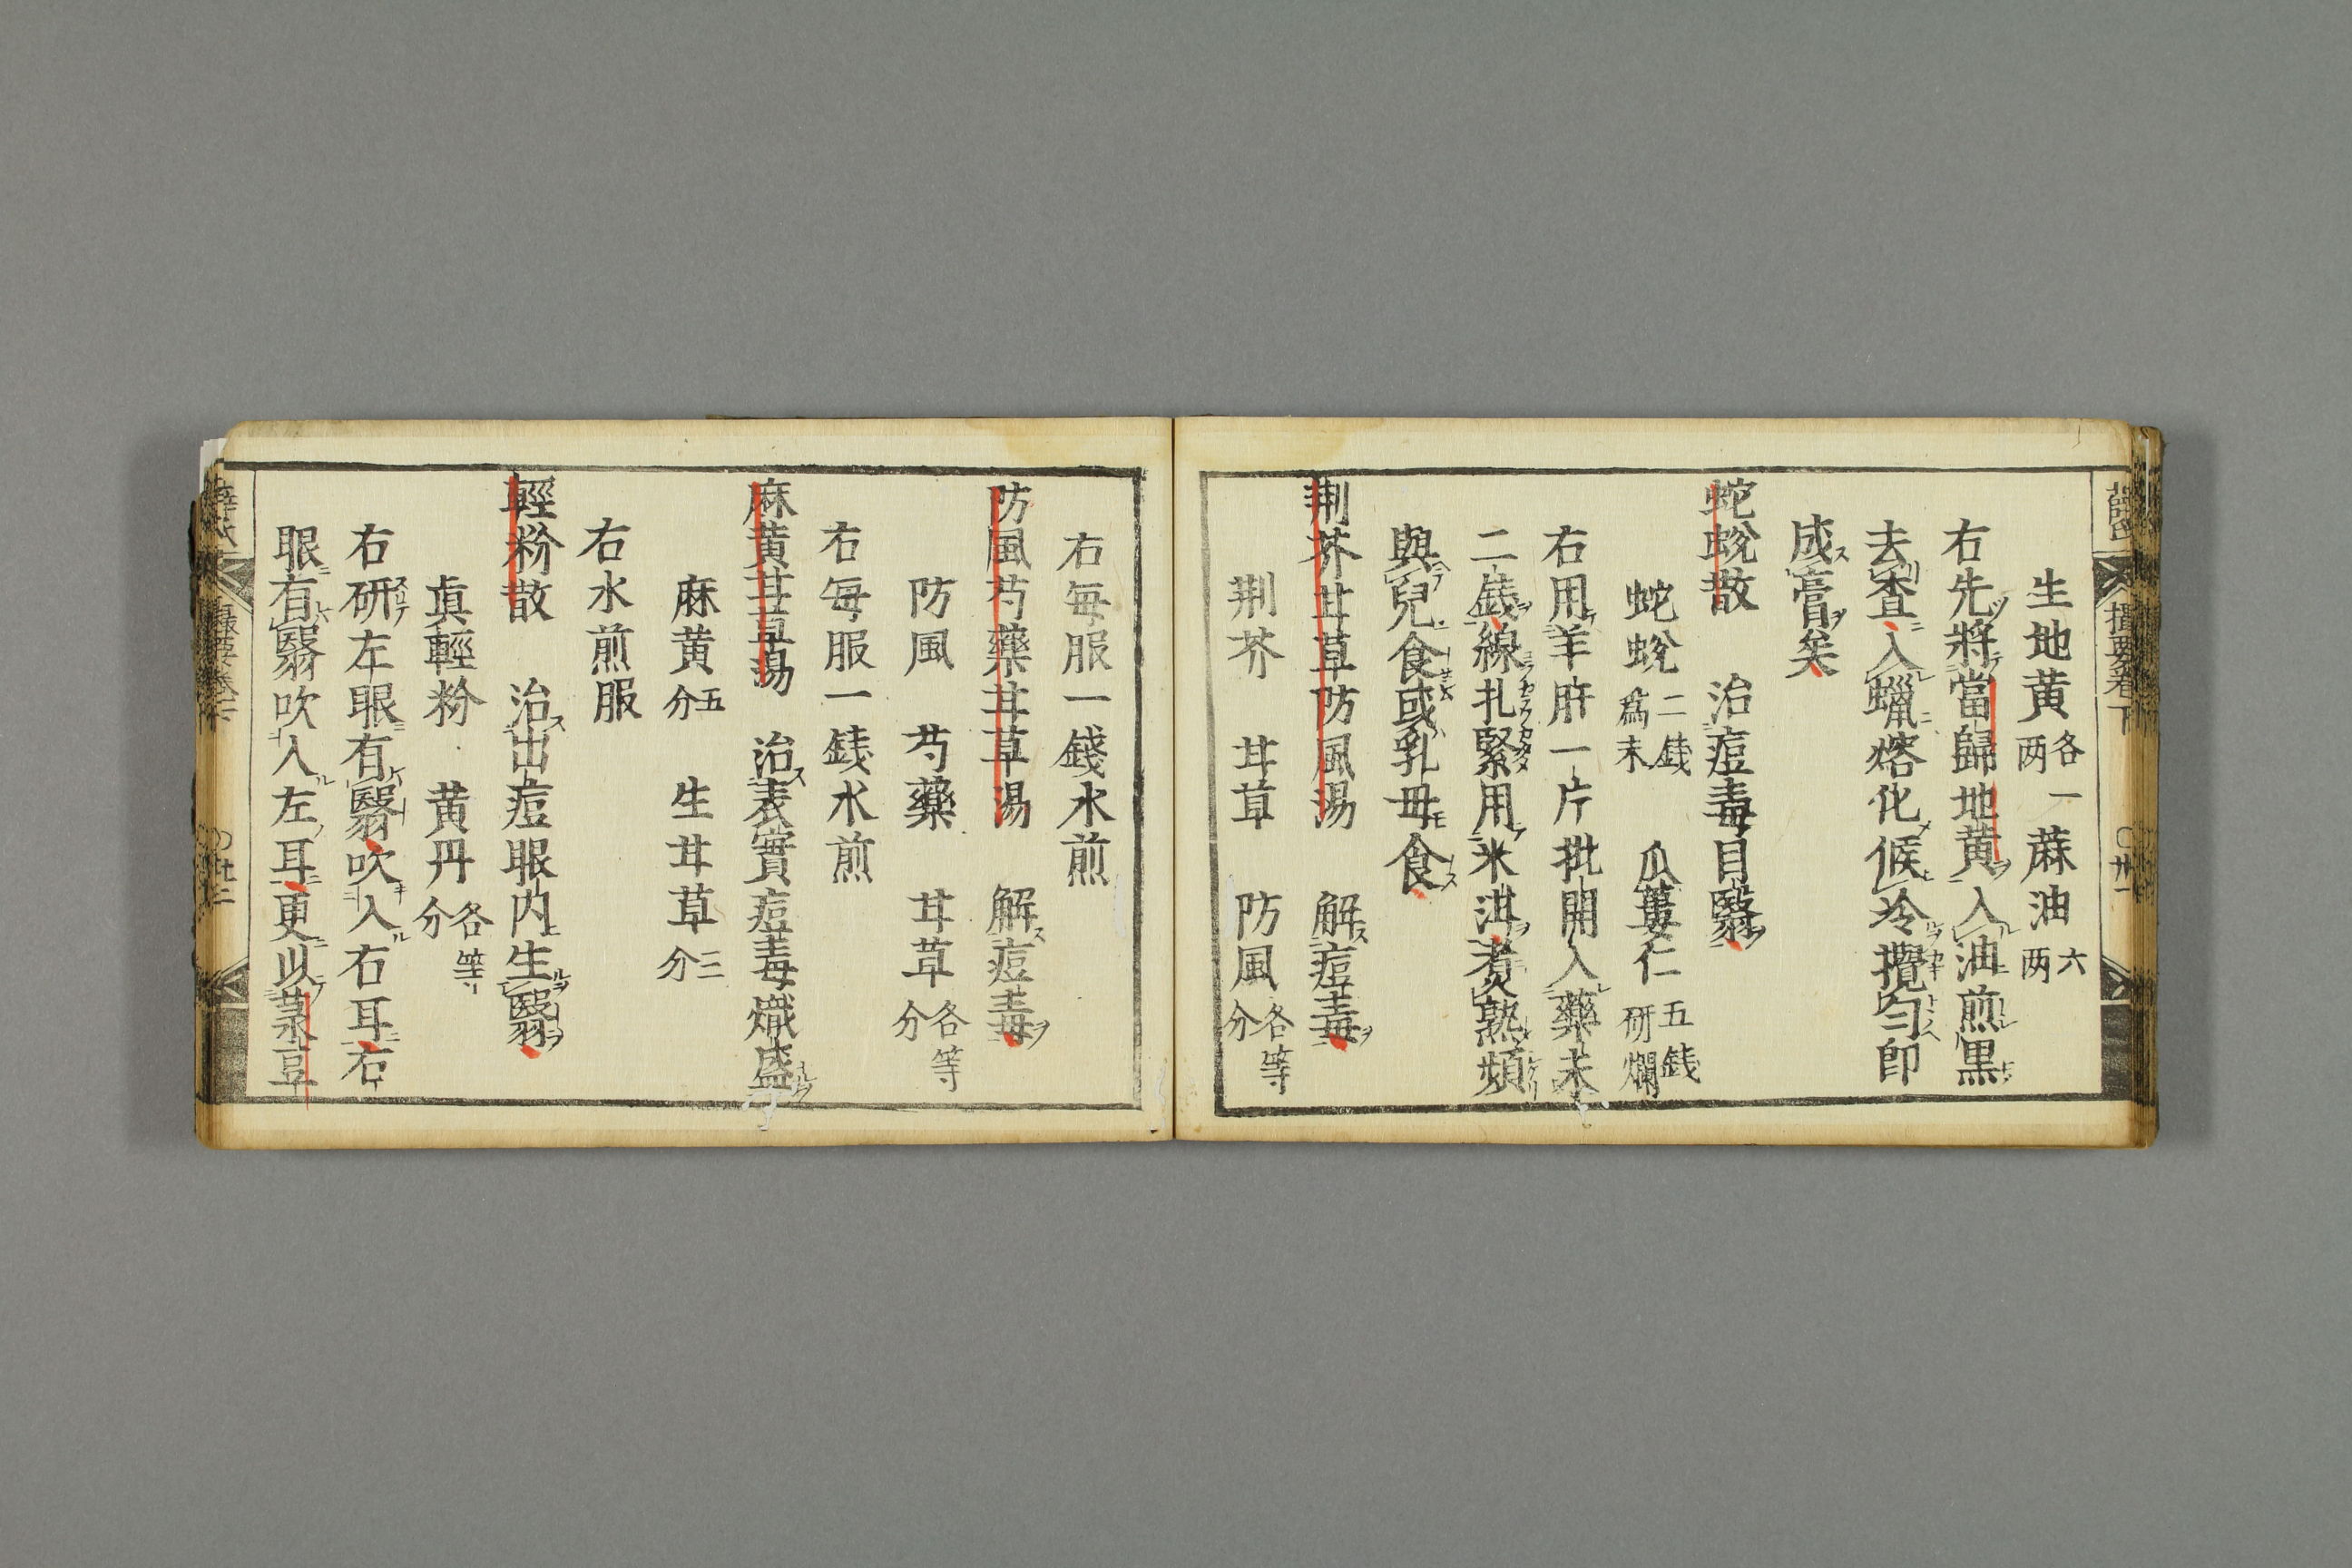 生地黄各一两 蔴油六两
右先將當歸地黄入油煎黒
去查入蠟熔化候冷攪匀即
成膏矣
蛇蛻散 治痘毒目翳
蛇蛻二錢爲末 瓜蔞仁五錢研爛
右用羊肝一片批開入藥末
二錢線扎緊用米泔煑熟頻
與兒食或乳母食
荆芥甘草防風湯 解痘毒
荆芥 甘草 防風各等分
右每服一錢水煎
防風芍藥甘草湯 解痘毒
防風 芍藥 甘草各等分
右每服一錢水煎
麻黄甘草湯 治表實痘毒熾盛
麻黄五分 生甘草三分
右水煎服
輕粉散 治出痘眼内生翳
眞輕粉 黄丹各等分
右研左眼有翳吹入右耳右
眼有翳吹入左耳更以菉豆